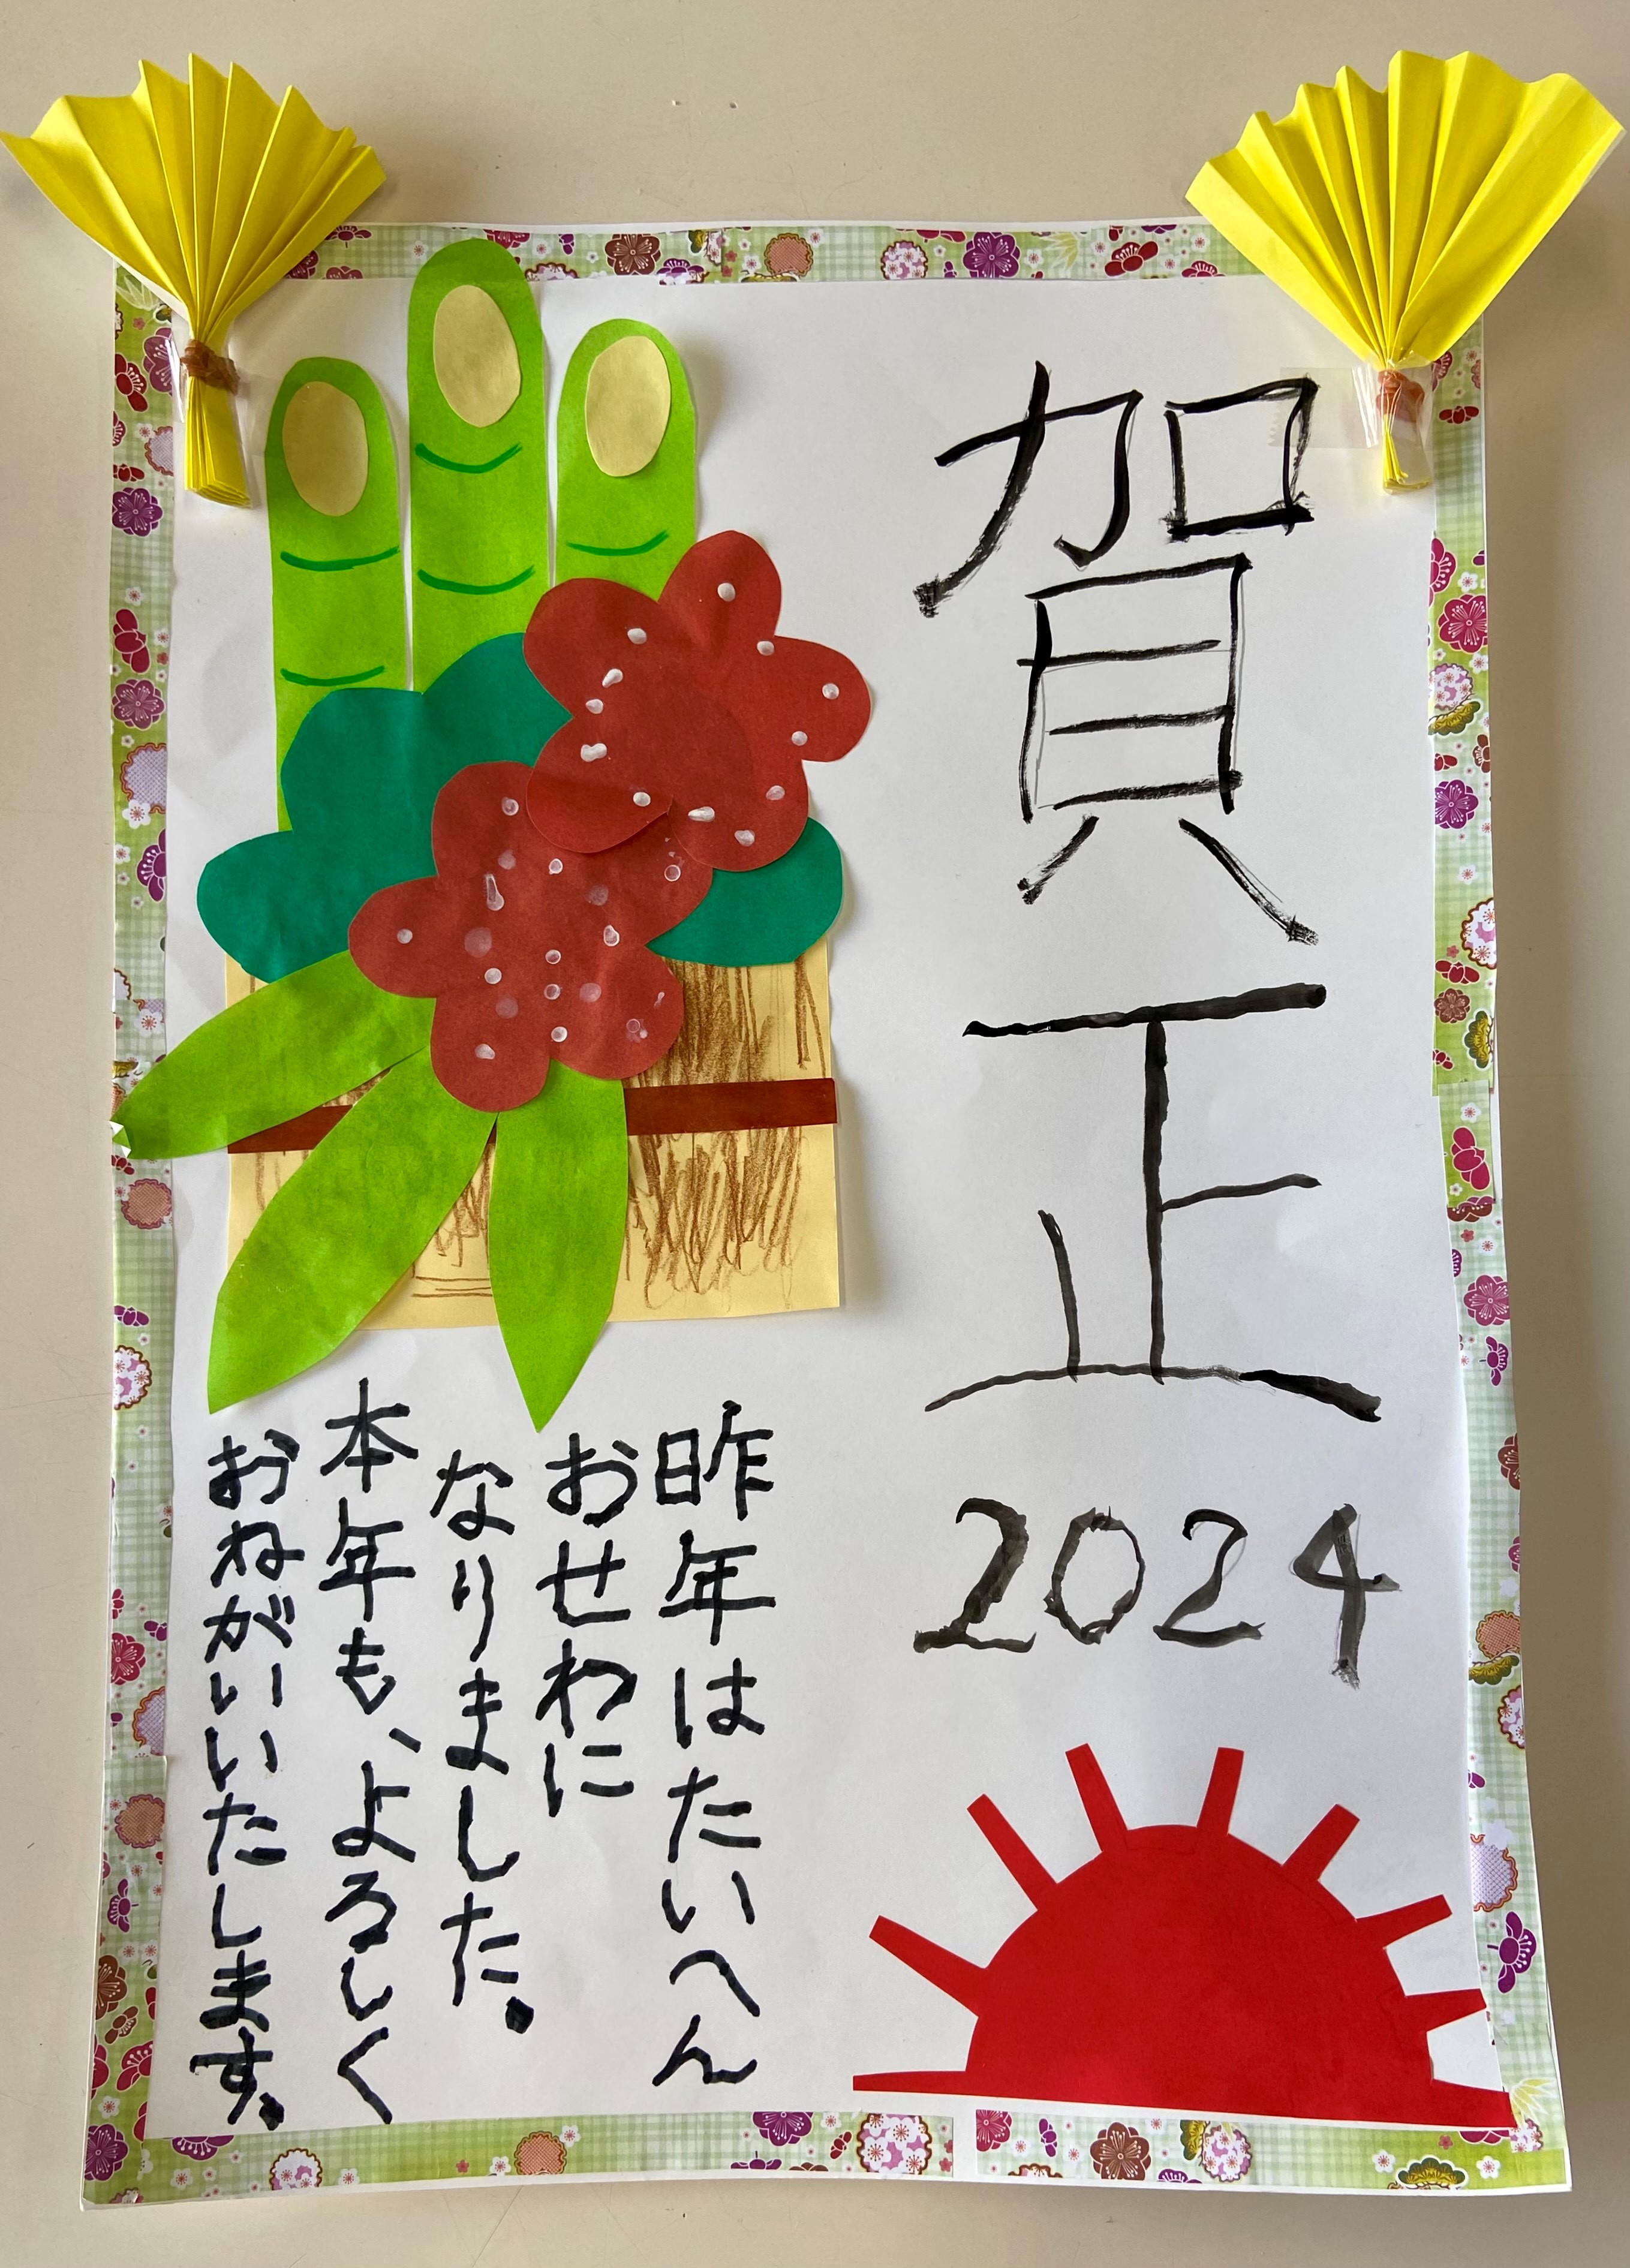 賀正
2024
昨年はたいへん
おせわに
なりました。
本年も、よろしく
おねがいいたします。